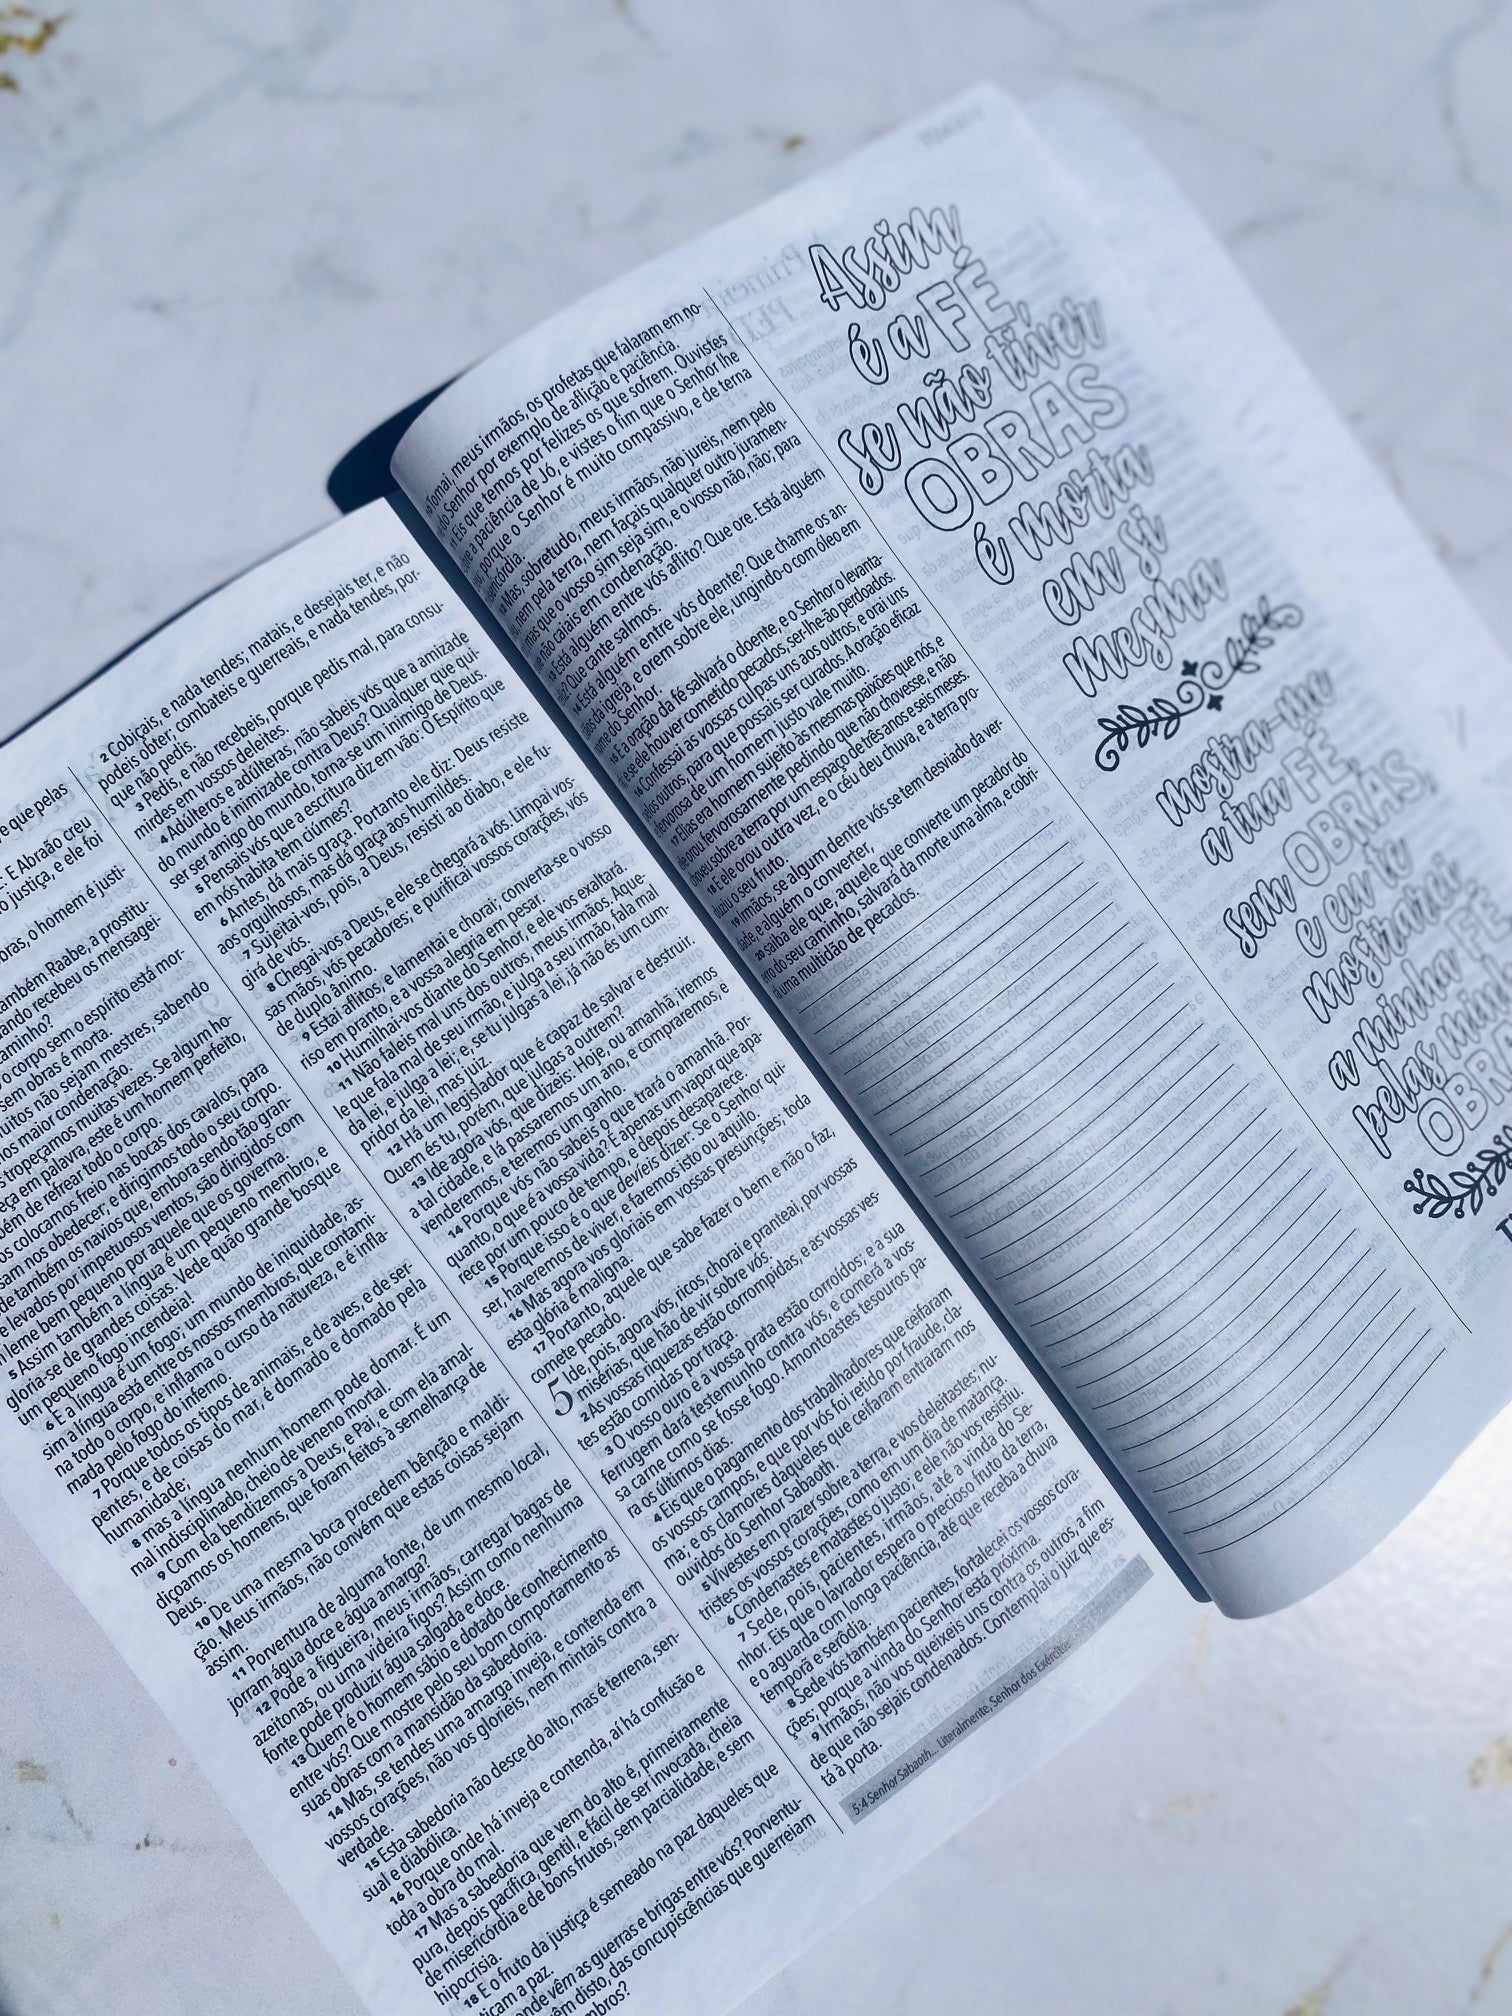 e que pelas
E: E Abraão creu
o justiça, e ele foi
oras, o homem é justi-
também Raabe, a prostitu-
ando recebeu os mensagei-
aminho?
o corpo sem o espírito está mor-
sem obras é morta.
uitos não sejam mestres, sabendo
os maior condenação.
s tropeçamos muitas vezes. Se algum ho-
eça em palavra, este é um homem perfeito,
bém de refrear todo o corpo.
os colocamos freio nas bocas dos cavalos, para
sam nos obedecer, e dirigimos todo o seu corpo.
de também os navios que, embora sendo tão gran-
e levados por impetuosos ventos, são dirigidos com
leme bem pequeno por aquele que os governa.
5 Assim também a língua é um pequeno membro, e
gloria-se de grandes coisas. Vede quão grande bosque
um pequeno fogo incendeia!
6 E a língua é um fogo; um mundo de iniquidade, as-
sim a língua está entre os nossos membros, que contami-
na todo o corpo, e inflama o curso da natureza, e é infla-
mada pelo fogo do inferno.
7 Porque todos os tipos de animais, e de aves, e de ser-
pentes, e de coisas do mar, é domado e domado pela
humanidade;
8 mas a língua nenhum homem pode domar. É um
mal indisciplinado, cheio de veneno mortal.
9 Com ela bendizemos a Deus, e Pai, e com ela amal-
diçoamos os homens, que foram feitos à semelhança de
Deus.
10 De uma mesma boca procedem bênção e maldi-
ção. Meus irmãos, não convém que estas coisas sejam
assim.
11 Porventura de alguma fonte, de um mesmo local,
jorram água doce e água amarga?
12 Pode a figueira, meus irmãos, carregar bagas de
azeitonas, ou uma videira figos? Assim como nenhuma
fonte pode produzir água salgada e doce.
13 Quem é o homem sábio e dotado de conhecimento
entre vós? Que mostre pelo seu bom comportamento as
suas obras com a mansidão da sabedoria.
14 Mas, se tendes uma amarga inveja, e contenda em
vossos corações, não vos glorieis, nem mintais contra a
verdade.
15 Esta sabedoria não desce do alto, mas é terrena, sen-
sual e diabólica.
16 Porque onde há inveja e contenda, aí há confusão e
toda a obra do mal.
17 Mas a sabedoria que vem do alto é, primeiramente
pura, depois pacífica, gentil, e fácil de ser invocada, cheia
de misericórdia e de bons frutos, sem parcialidade, e sem
hipocrisia.
18 E o fruto da justiça é semeado na paz daqueles que
ticam a paz.
onde vêm as guerras e brigas entre vós? Porventu-
êm disto, das concupiscências que guerreiam
mbros?
2 Cobiçais, e nada tendes; matais, e desejais ter, e não
podeis obter; combateis e guerreais, e nada tendes, por-
que não pedis.
3 Pedis, e não recebeis, porque pedis mal, para consu-
mirdes em vossos deleites.
4 Adúlteros e adúlteras, não sabeis vós que a amizade
do mundo é inimizade contra Deus? Qualquer que qui-
ser ser amigo do mundo, torna-se um inimigo de Deus.
5 Pensais vós que a escritura diz em vão: O Espírito que
em nós habita tem ciúmes?
6 Antes, dá mais graça. Portanto ele diz: Deus resiste
aos orgulhosos, mas dá graça aos humildes.
7 Sujeitai-vos, pois, a Deus, resisti ao diabo, e ele fu-
girá de vós.
8 Chegai-vos a Deus, e ele se chegará a vós. Limpai vos-
sas mãos, vós pecadores; e purificai vossos corações, vós
de duplo ânimo.
9 Estai aflitos, e lamentai e chorai; converta-se o vosso
riso em pranto, e a vossa alegria em pesar.
10 Humilhai-vos diante do Senhor, e ele vos exaltará.
11 Não faleis mal uns dos outros, meus irmãos. Aque-
le que fala mal de seu irmão, e julga a seu irmão, fala mal
da lei, e julga a lei; e, se tu julgas a lei, já não és um cum-
pridor da lei, mas juiz.
12 Há um legislador que é capaz de salvar e destruir.
Quem és tu, porém, que julgas a outrem?
13 Ide agora vós, que dizeis: Hoje, ou amanhã, iremos
a tal cidade, e lá passaremos um ano, e compraremos, e
venderemos, e teremos um ganho.
14 Porque vós não sabeis o que trará o amanhã. Por-
quanto, o que é a vossa vida? É apenas um vapor que apa-
rece por um pouco de tempo, e depois desaparece.
15 Porque isso é o que devíeis dizer: Se o Senhor qui-
ser, haveremos de viver, e faremos isto ou aquilo.
16 Mas agora vos gloriais em vossas presunções; toda
esta glória é maligna.
17 Portanto, aquele que sabe fazer o bem e não o faz,
comete pecado.
5 Ide, pois, agora vós, ricos, chorai e pranteai, por vossas
misérias, que hão de vir sobre vós.
2 As vossas riquezas estão corrompidas, e as vossas ves-
tes estão comidas por traça.
3 O vosso ouro e a vossa prata estão corroídos; e a sua
ferrugem dará testemunho contra vós, e comerá a vos-
sa carne como se fosse fogo. Amontoastes tesouros pa-
ra os últimos dias.
4 Eis que o pagamento dos trabalhadores que ceifaram
os vossos campos, e que por vós foi retido por fraude, cla-
ma; e os clamores daqueles que ceifaram entraram nos
ouvidos do Senhor Sabaoth.
5 Vivestes em prazer sobre a terra, e vos deleitastes; nu-
tristes os vossos corações, como em um dia de matança.
6 Condenastes e matastes o justo; e ele não vos resistiu.
7 Sede, pois, pacientes, irmãos, até a vinda do Se-
nhor. Eis que o lavrador espera o precioso fruto da terra,
e o aguarda com longa paciência, até que receba a chuva
temporã e serôdia.
8 Sede vós também pacientes, fortalecei os vossos cora-
ções; porque a vinda do Senhor está próxima.
9 Irmãos, não vos queixeis uns contra os outros, a fim
de que não sejais condenados. Contemplai o juiz que es-
tá à porta.
5:4 Senhor Sabaoth... Literalmente, Senhor dos Exércitos
10 Tomai, meus irmãos, os profetas que falaram em no-
do Senhor por exemplo de aflição e paciência.
11 Eis que temos por felizes os que sofrem. Ouvistes
a paciência de Jó, e vistes o fim que o Senhor lhe
porque o Senhor é muito compassivo, e de terna
misericórdia.
12 Mas, sobretudo, meus irmãos, não jureis, nem pelo
nem pela terra, nem façais qualquer outro juramen-
mas que o vosso sim seja sim, e o vosso não, não; para
que não caiais em condenação.
13 Está alguém entre vós aflito? Que ore. Está alguém
feliz? Que cante salmos.
14 Está alguém entre vós doente? Que chame os an-
ciãos da igreja, e orem sobre ele, ungindo-o com óleo em
nome do Senhor.
15 E a oração da fé salvará o doente, e o Senhor o levanta-
e se ele houver cometido pecados, ser-lhe-ão perdoados.
16 Confessai as vossas culpas uns aos outros, e orai uns
pelos outros, para que possais ser curados. A oração eficaz
e fervorosa de um homem justo vale muito.
17 Elias era homem sujeito às mesmas paixões que nós, e
ele orou fervorosamente pedindo que não chovesse, e não
choveu sobre a terra por um espaço de três anos e seis meses.
18 E ele orou outra vez, e o céu deu chuva, e a terra pro-
duziu o seu fruto.
19 Irmãos, se algum dentre vós se tem desviado da ver-
dade, e alguém o converter,
20 saiba ele que, aquele que converte um pecador do
erro do seu caminho, salvará da morte uma alma, e cobri-
rá uma multidão de pecados.
Assim
é a FÉ,
se não tiver
OBRAS
é morta
em si
mesma
mostra-me
a tua FÉ
sem OBRAS,
e eu te
mostrarei
a minha FÉ
pelas minha
OBRA